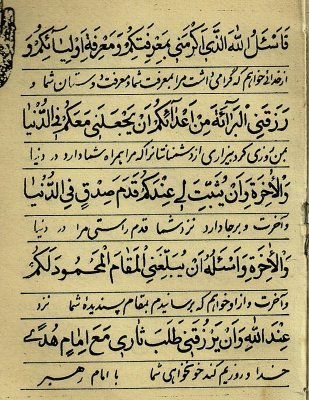 فَاَسْئَلُ اللهَ الَّذی اَکْرَمَنی بِمَعْرِفَتِکُمْ وَمَعْرِفَةِ اَوْلِیائِکُمْ وَ
از خدائی خواهم که گرامی داشت مرا بمعرفت شما و معرفت دوستان شما و
رَزَقَنِی الْبَرآئَةَ مِنْ اَعْدآئِکُمْ اَنْ یَجْعَلَنی مَعَکُمْ فِی الدُّنْیا
بمن روزی کرد بیزاری از دشمنانتان که مرا همراه شما دارد در دنیا
وَالْاخِرَةِ وَاَنْ یُثَبِّتَ لی عِنْدَکُمْ قَدَمَ صِدْقٍ فِی الدُّنْیا
و آخرت و برجا دارد نزد شما قدم راستی مرا در دنیا
وَالْاخِرَةِ وَاَسْئَلُهُ اَنْ یُبَلِّغَنِی الْمَقامَ الْمَحْمُودَ لَکُمْ
و آخرت و از او خواهم که برساندم بمقام پسندیدهٔ شما نزد
عِنْدَ اللهِ وَاَنْ یَرْزُقَنی طَلَبَ ثاری مَعَ اِمامٍ هُدیً
خدا و روزیم کند خونخواهی شما با امام رهبر